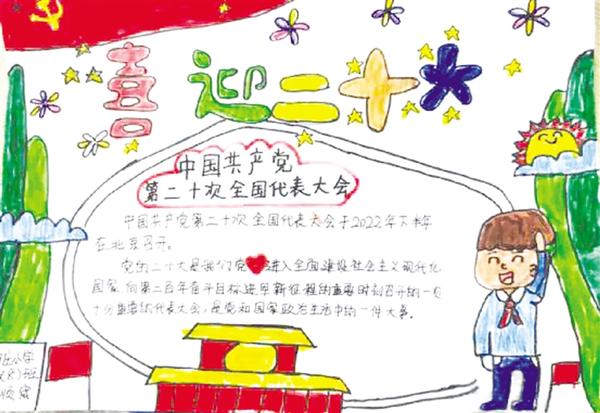 喜迎二十大
中国共产党
第二十次全国代表大会
中国共产党第二十次全国代表大会于2022年下半年
在北京召开。
党的二十大是我们党进入全面建设社会主义现代化
国家、向第二百年奋斗目标进军新征程的重要时刻召开的一次
十分重要的代表大会,是党和国家政治生活中的一件大事。
小学
(8)班